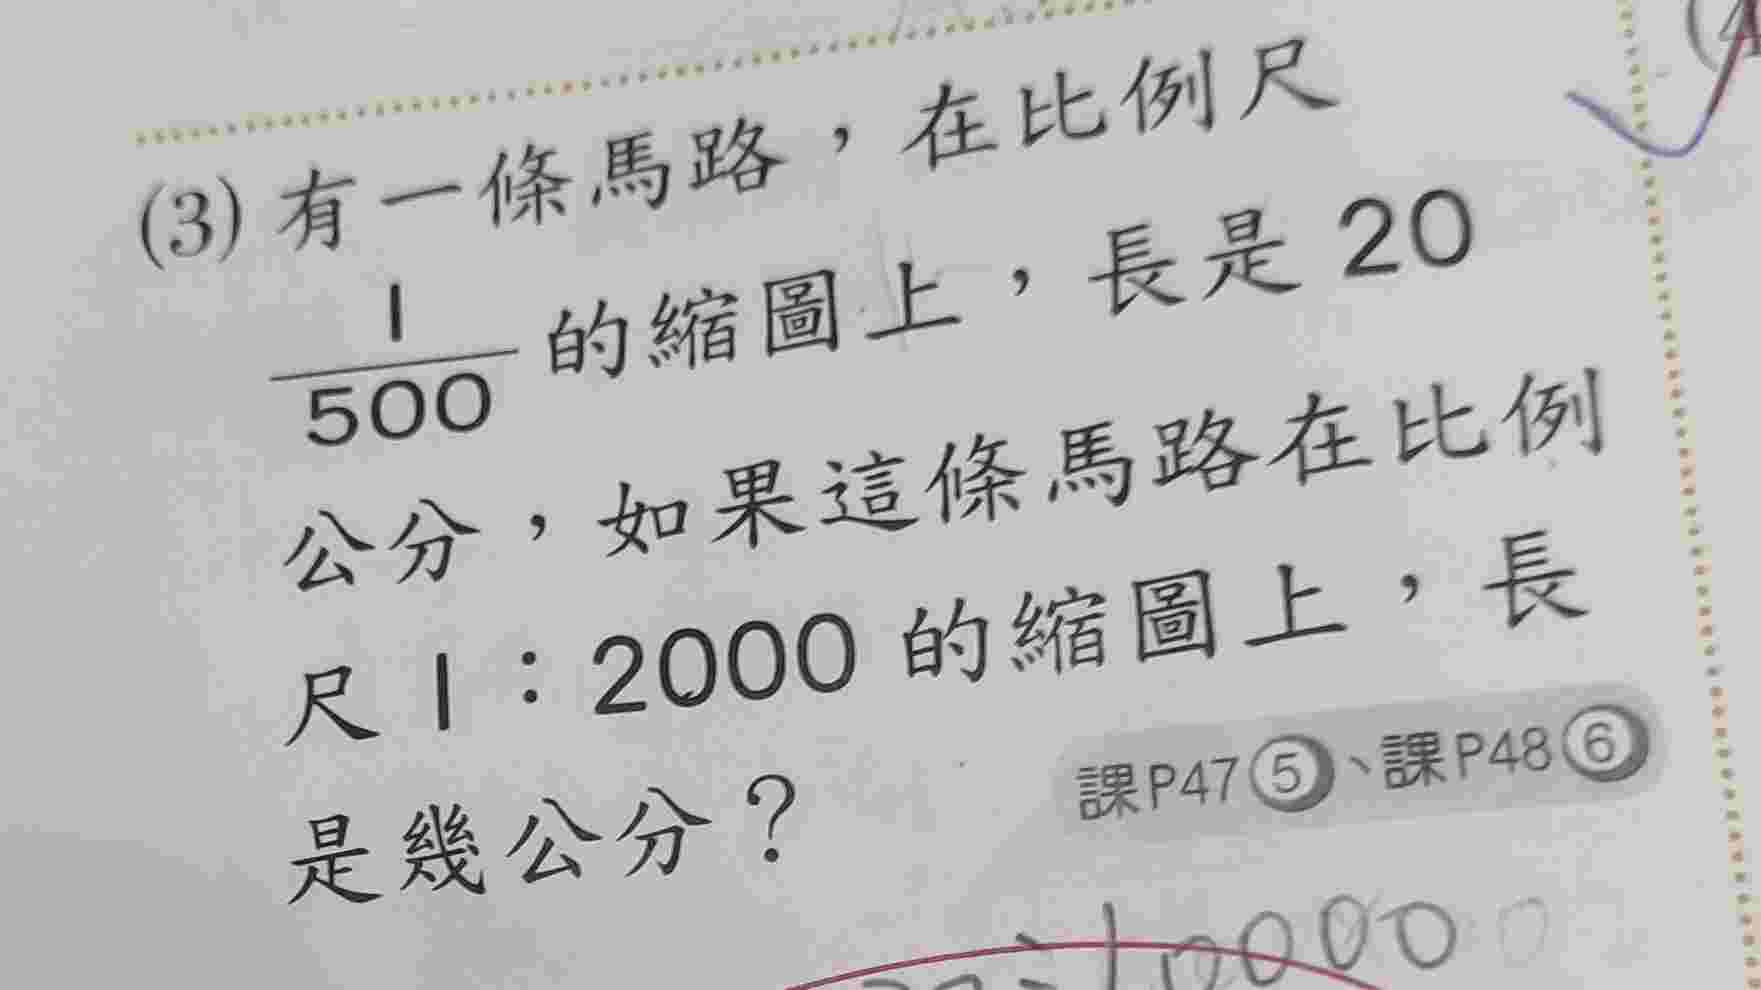 (3) 有一條馬路，在比例尺
1/500 的縮圖上，長是 20
公分，如果這條馬路在比例
尺 1：2000 的縮圖上，長
是幾公分？
課P47⑤、課P48⑥
10000